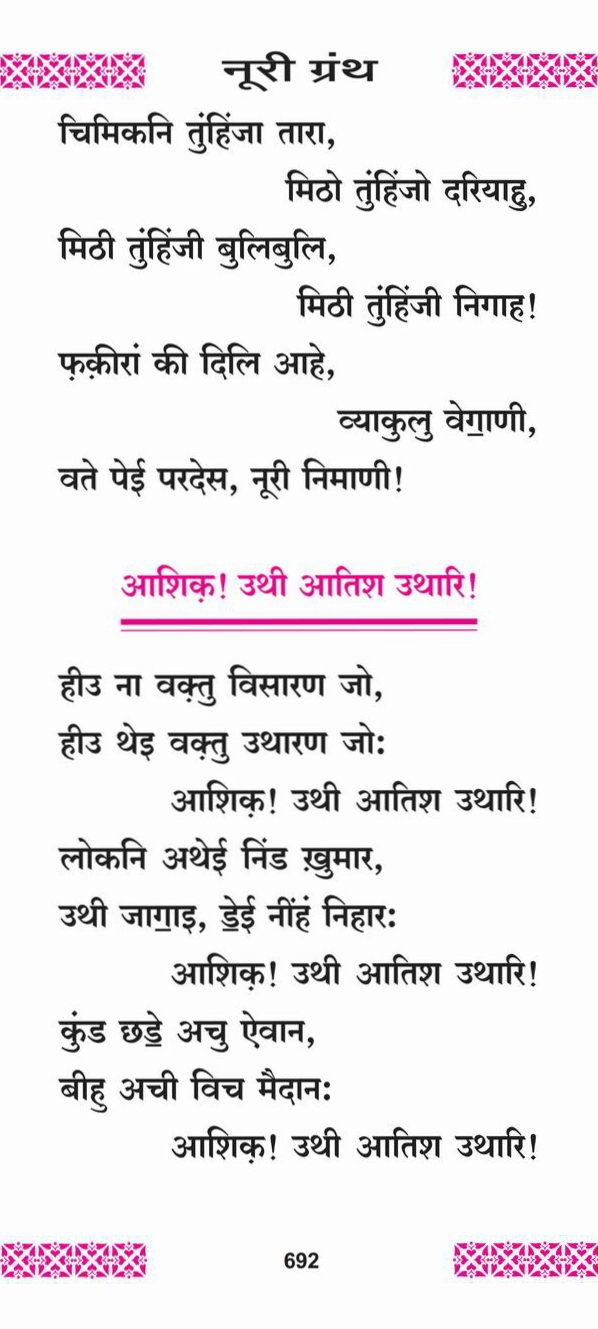 नूरी ग्रंथ
चिमिकनि तुंहिंजा तारा,
मिठो तुंहिंजो दरियाहु,
मिठी तुंहिंजी बुलिबुलि,
मिठी तुंहिंजी निगाह!
फ़क़ीरां की दिलि आहे,
व्याकुलु वेॻाणी,
वते पेई परदेस, नूरी निमाणी!
आशिक़! उथी आतिश उथारि!
हीउ ना वक़्तु विसारण जो,
हीउ थेइ वक़्तु उथारण जो:
आशिक़! उथी आतिश उथारि!
लोकनि अथेई निंड ख़ुमार,
उथी जाॻाइ, ॾेई नींहं निहार:
आशिक़! उथी आतिश उथारि!
कुंड छॾे अचु ऐवान,
बीहु अची विच मैदान:
आशिक़! उथी आतिश उथारि!
692